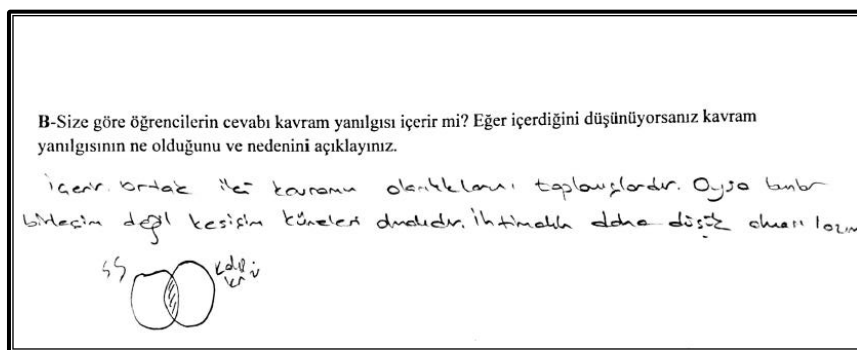 B-Size göre öğrencilerin cevabı kavram yanılgısı içerir mi? Eğer içerdiğini düşünüyorsanız kavram
yanılgısının ne olduğunu ve nedenini açıklayınız.
İçerir. ortak iki kavramın olasılıklarını toplamışlardır. Oysa bunlar
birleşim değil kesişim kümeleri olmalıdır. İhtimalin daha düşük olması lazım
55 kalp